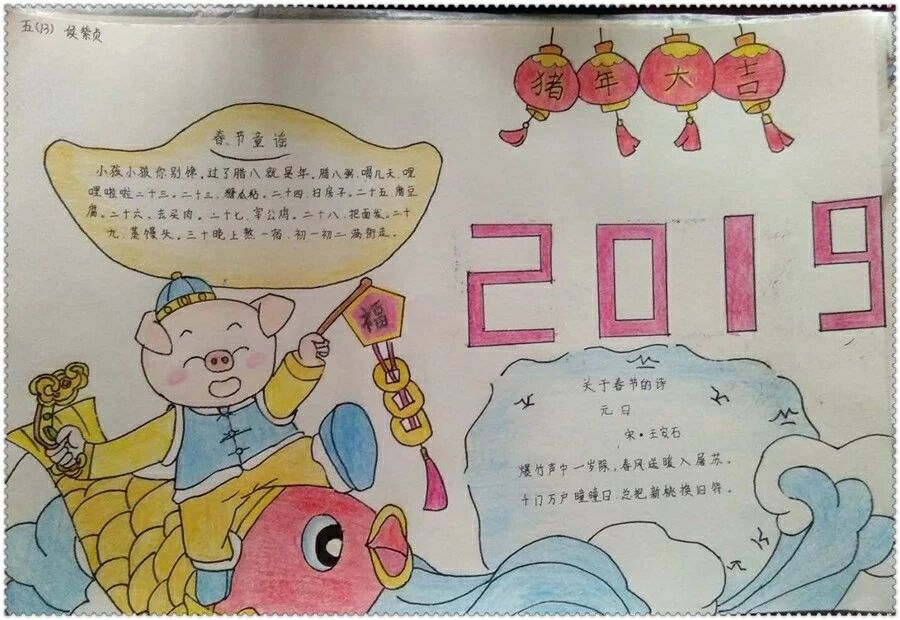 五(13) 侯紫贞
猪年大吉
春节童谣
小孩小孩你别馋,过了腊八就是年,腊八粥,喝几天,哩
哩啦啦二十三。二十三,糖瓜粘。二十四,扫房子。二十五,磨豆
腐。二十六,去买肉。二十七,宰公鸡。二十八,把面发。二十
九,蒸馒头。三十晚上熬一宿,初一初二满街走。
2019
福
关于春节的诗
元日
宋·王安石
爆竹声中一岁除,春风送暖入屠苏。
千门万户曈曈日,总把新桃换旧符。